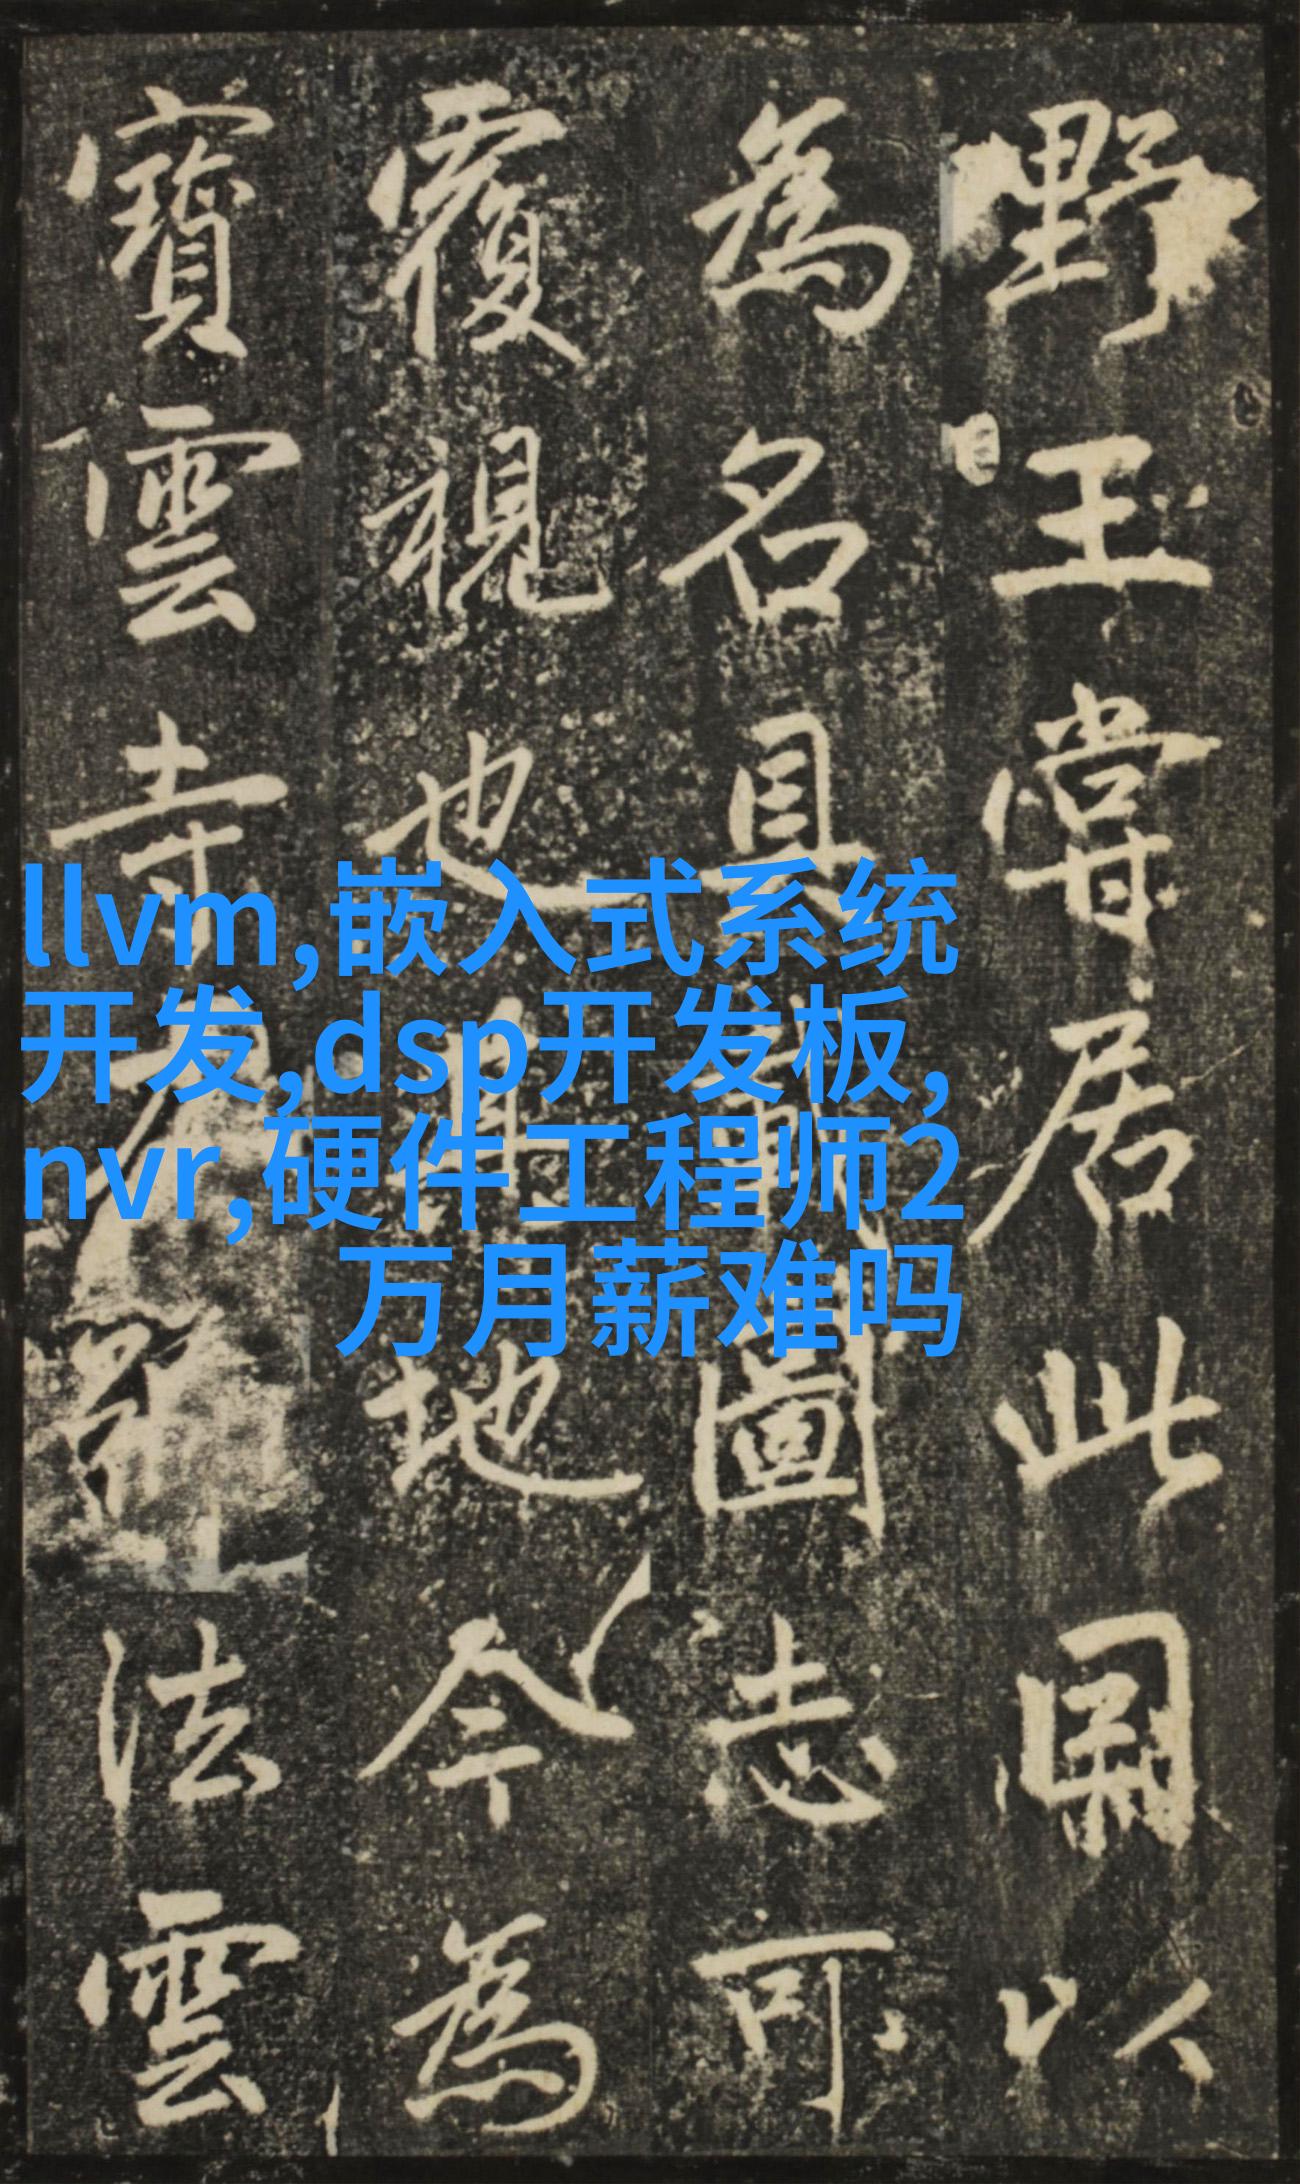 野王嘗居此以
為名具圖志可
覆視也地今為
寶雲寺法雲
llvm,嵌入式系统
开发,dsp开发板,
nvr,硬件工程师2
万月薪难吗